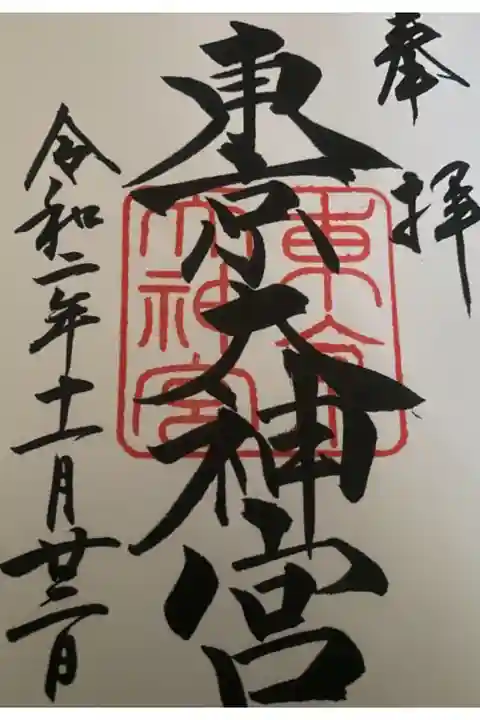 奉拝
東京大神宮
東京
大神宮
令和二年十一月廿二日